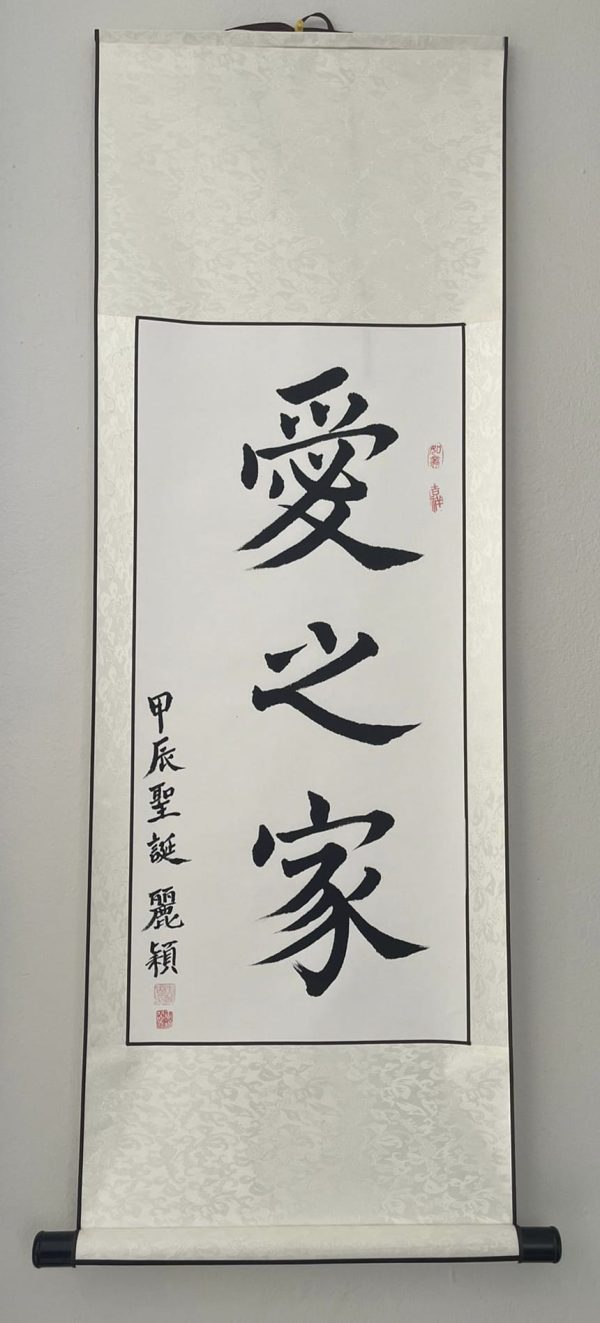 愛之家
甲辰聖誕 麗穎
吉祥